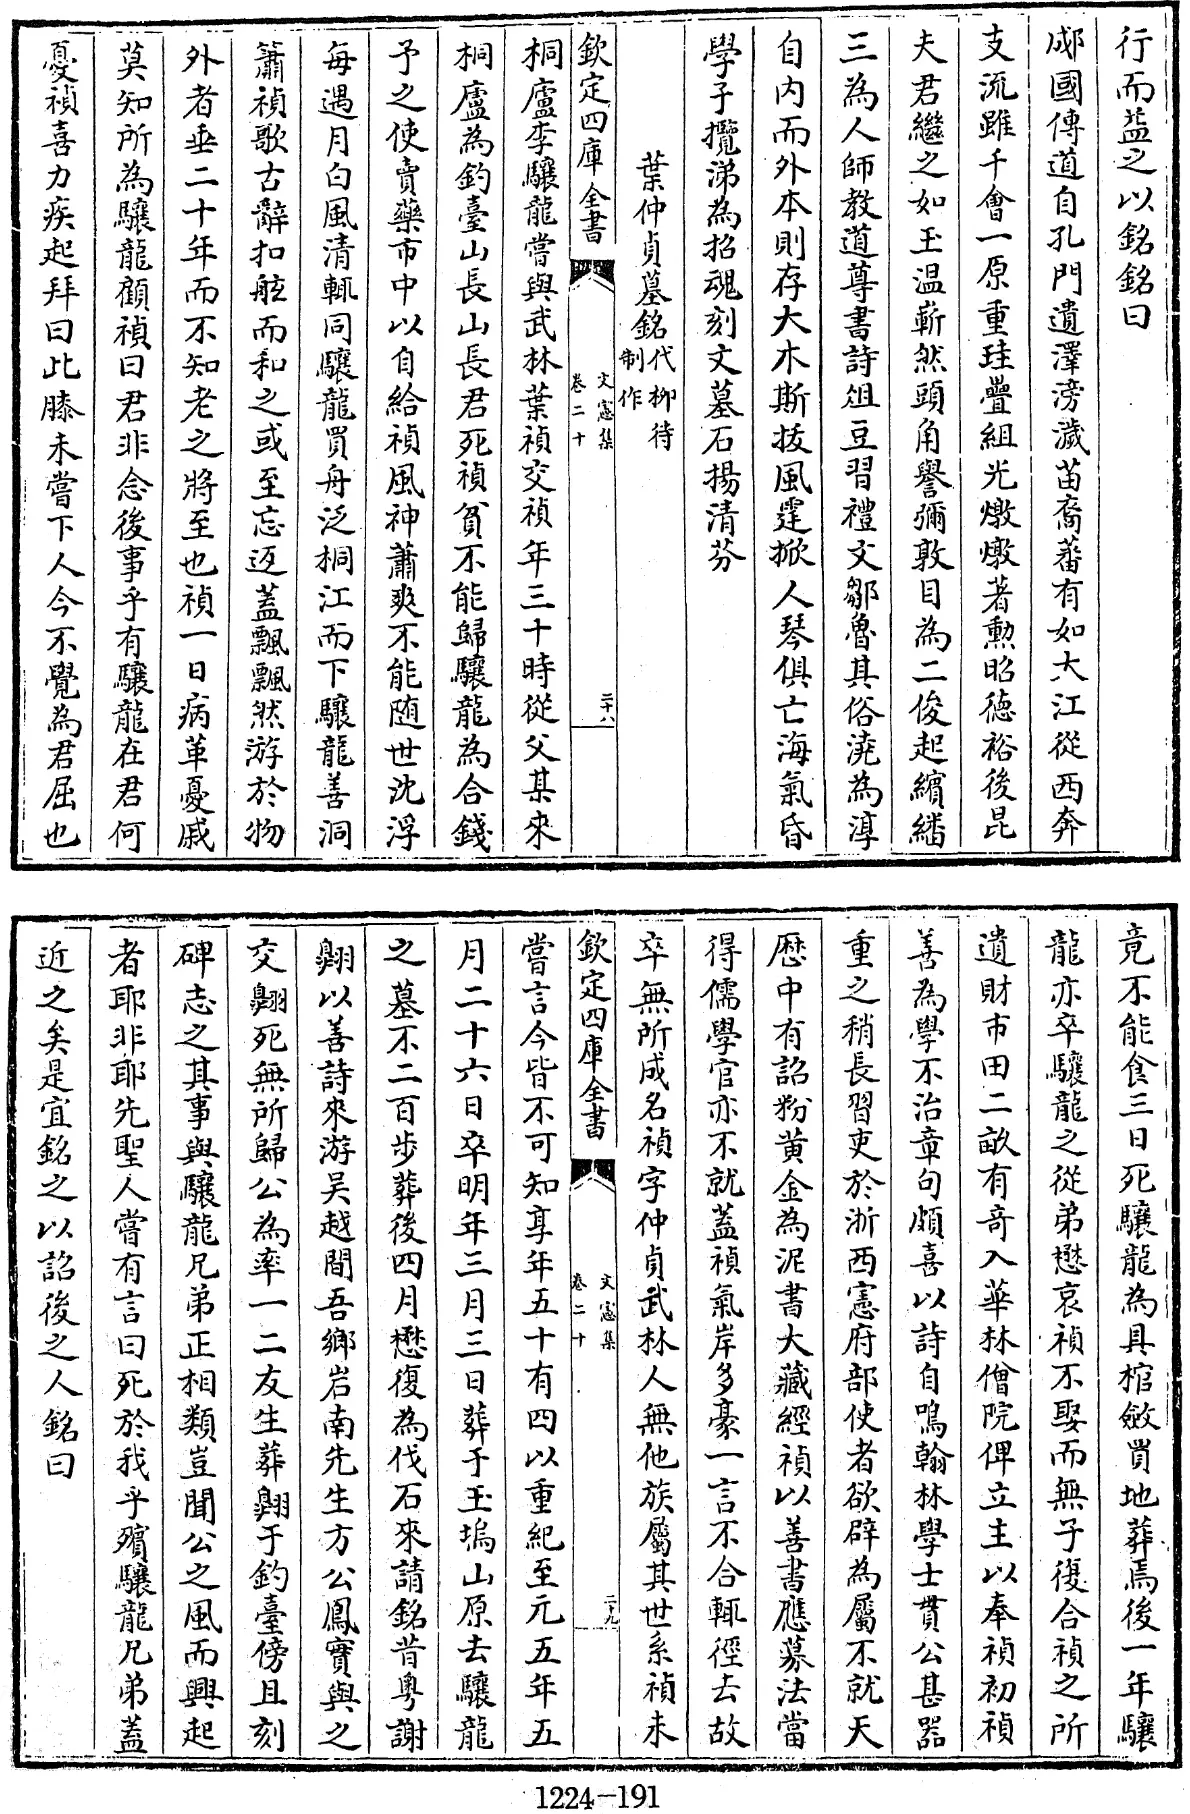 行而葢之以銘銘曰
郕國傳道自孔門遺澤滂濊苗裔蕃有如大江從西奔
支流雖千會一原重珪疊組光燉燉著勲昭徳裕後昆
夫君繼之如玉温嶄然頭角譽彌敦目為二俊起繽繙
三為人師教道尊書詩俎豆習禮文鄒魯其俗澆為淳
自内而外本則存大木斯拔風霆掀人琴俱亡海氣昏
學子攬涕為招魂刻文墓石揚清芬
葉仲貞墓銘代柳待制作
欽定四庫全書
文憲集
卷二十
二十八
桐廬李驤龍嘗與武林葉禎交禎年三十時從父某來
桐廬為釣臺山長山長君死禎貧不能歸驤龍為合錢
予之使賣藥市中以自給禎風神蕭爽不能随世沈浮
每遇月白風清輒同驤龍買舟泛桐江而下驤龍善洞
簫禎歌古辭扣舷而和之或至忘返葢飄飄然游於物
外者垂二十年而不知老之將至也禎一日病革憂戚
莫知所為驤龍顧禎曰君非念後事乎有驤龍在君何
憂禎喜力疾起拜曰此膝未嘗下人今不覺為君屈也
竟不能食三日死驤龍為具棺斂買地葬焉後一年驤
龍亦卒驤龍之從弟懋哀禎不娶而無子復合禎之所
遺財市田二畝有奇入華林僧院俾立主以奉禎初禎
善為學不治章句頗喜以詩自鳴翰林學士貫公甚器
重之稍長習吏於浙西憲府部使者欲辟為屬不就天
厯中有詔粉黄金為泥書大藏經禎以善書應募法當
得儒學官亦不就葢禎氣岸多豪一言不合輒徑去故
卒無所成名禎字仲貞武林人無他族屬其世系禎未
欽定四庫全書
文憲集
卷二十
二十九
嘗言今皆不可知享年五十有四以重紀至元五年五
月二十六日卒明年三月三日葬于玉塢山原去驤龍
之墓不二百步葬後四月懋復為伐石來請銘昔粤謝
翺以善詩來游吴越間吾鄉岩南先生方公鳳實與之
交翺死無所歸公為率一二友生葬翺于釣臺傍且刻
碑志之其事與驤龍兄弟正相類豈聞公之風而興起
者耶非耶先聖人嘗有言曰死於我乎殯驤龍兄弟葢
近之矣是宜銘之以詔後之人銘曰
1224-191